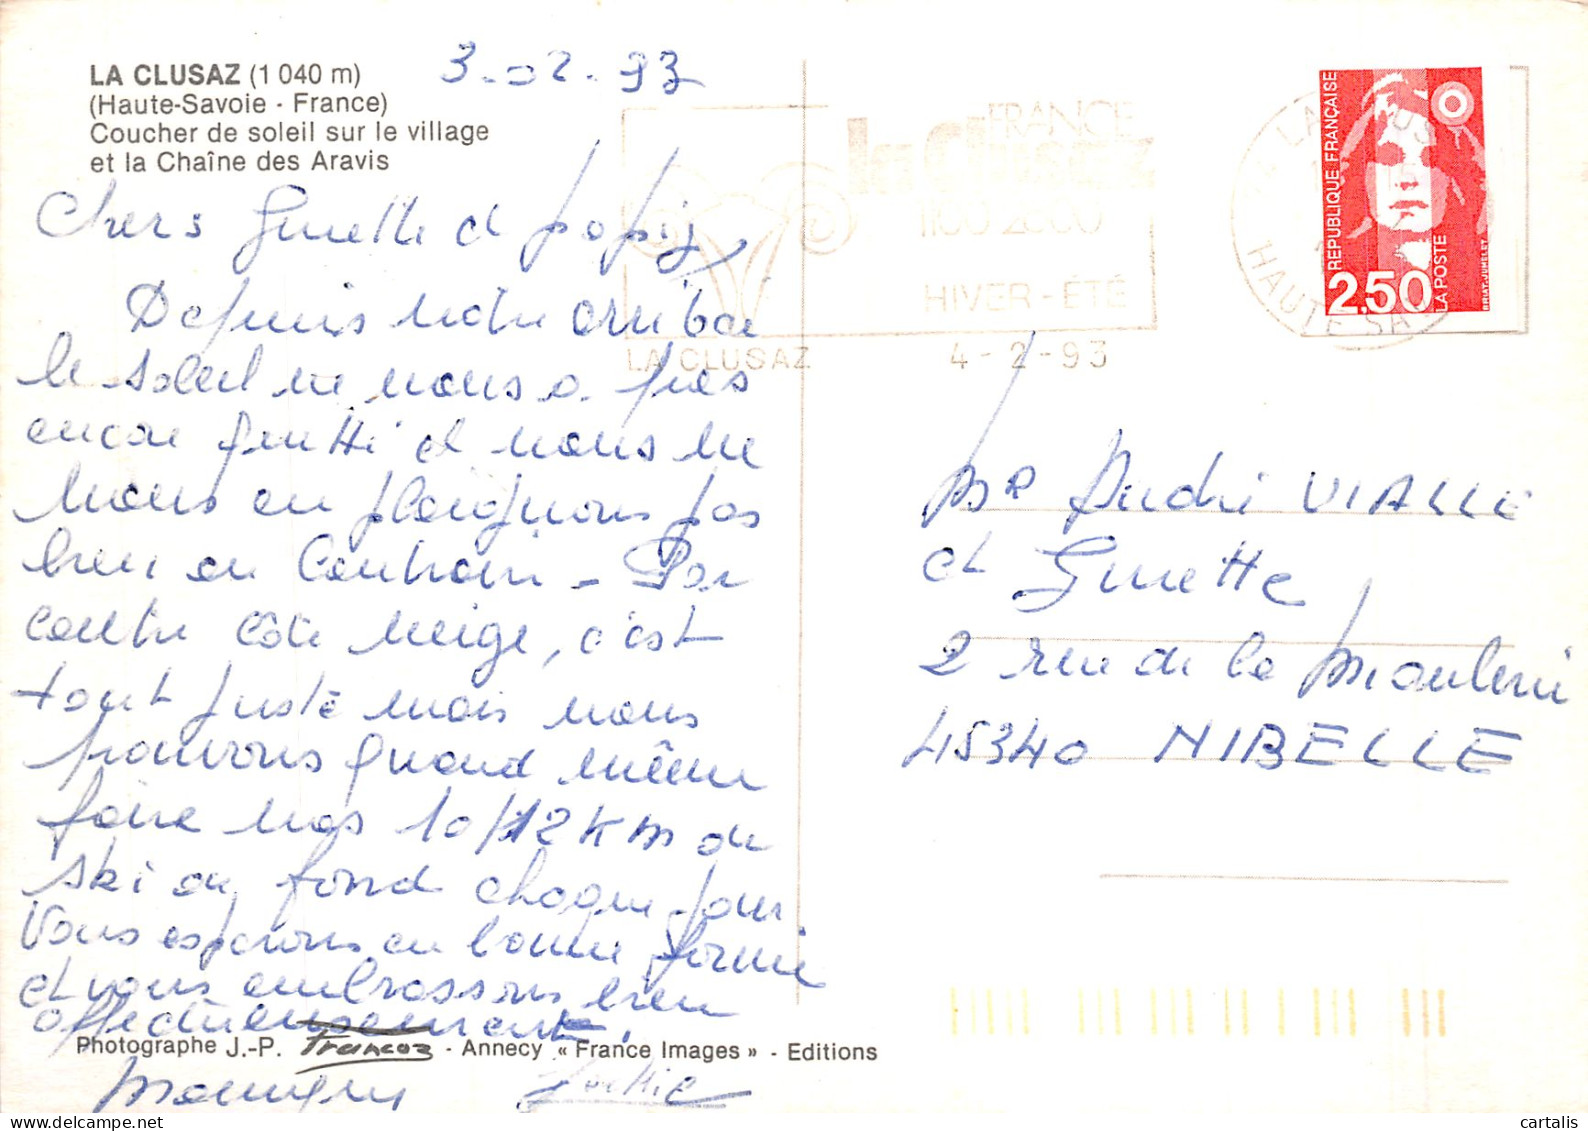 LA CLUSAZ (1 040 m)
(Haute-Savoie - France)
Coucher de soleil sur le village
et la Chaîne des Aravis
3-02-93
Chers Ginette et papy,
Depuis notre arrivée
le soleil ne nous a pas
encore quitté et nous ne
nous en plaignons pas
bien au contraire - Par
contre côté neige, c'est
tout juste mais nous
pouvons quand même
faire nos 10/12 KM de
ski de fond chaque jour
Vous espérons en bonne forme
et vous embrassons bien
affectueusement.
Photographe J.-P. Francoz - Annecy « France Images » - Editions
FRANCE
la Clusaz
1100 2600
HIVER - ÉTÉ
LA CLUSAZ 4-2-93
LA CLUSAZ
HAUTE SA
REPUBLIQUE FRANÇAISE
2,50
LA POSTE
BRIAT-JUMELET
Mr André VIALLE
et Ginette
2 rue de la
45340 NIBELLE
cartalis